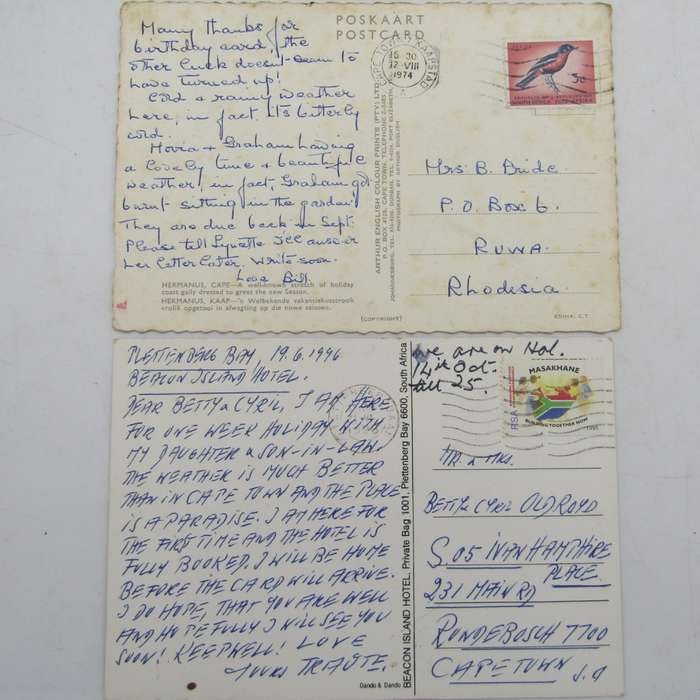 Many thanks for
birthday card, the
other luck doesn't seem to
have turned up!
Cold & rainy weather
here, in fact, its bitterly
cold.
& Graham having
a lovely time & beautiful
weather, in fact, Graham got
burnt sitting in the garden.
They are due back in Sept.
Please tell Lynette I'll answer
her letter later. Write soon.
Love Bill
HERMANUS, CAPE—A well-known stretch of holiday
coast gaily dressed to greet the new Season.
HERMANUS, KAAP—'n Welbekende vakansiekusstrook
vrolik opgetooi in afwagting op die nuwe seisoen.
POSKAART
POSTCARD
CAPE TOWN KAAPSTAD
16 30
12 VIII
1974
5c
ARTHUR ENGLISH COLOUR PRINTS (PTY) LTD
P.O. BOX 4129, CAPETOWN, TELEPHONE
PHOTOGRAPH BY ARTHUR ENGLISH
Mrs B. Bride.
P.O. Box 6.
RUWA.
Rhodesia.
(COPYRIGHT)
EDINA, C.T.
PLETTENBERG BAY, 19.6.1996
BEACON ISLAND HOTEL.
DEAR BETTY & CYRIL, I AM HERE
FOR ONE WEEK HOLIDAY WITH
MY DAUGHTER & SON-IN-LAW.
THE WEATHER IS MUCH BETTER
THAN IN CAPE TOWN AND THE PLACE
IS A PARADISE. I AM HERE FOR
THE FIRST TIME AND THE HOTEL IS
FULLY BOOKED. I WILL BE HOME
BEFORE THE CARD WILL ARRIVE.
I DO HOPE, THAT YOU ARE WELL
AND HOPEFULLY I WILL SEE YOU
SOON! KEEP WELL! LOVE
YOURS TRAUTE.
Dando & Dando
BEACON ISLAND HOTEL, Private Bag 1001, Plettenberg Bay 6600, South Africa
we are on Hol.
14th Oct.
till 25.
RSA
MASAKHANE
BUILDING TOGETHER NOW
1995
MR & MRS.
BETTY & CYRIL OLDROYD
S.05 IVANHAMPHIRE
PLACE.
231 MAIN RD
RONDEBOSCH 7700
CAPETOWN S.A